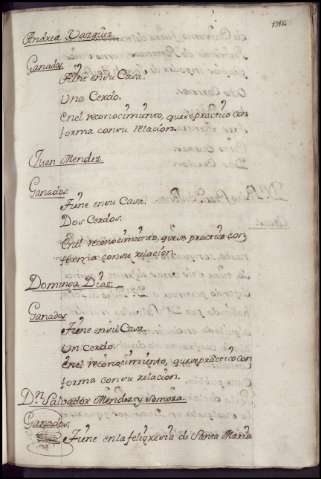 Andrea Vazquez.
Ganados
Tiene en su Casa.
Una Cerdo.
En el reconocimiento, que se practico con
forma con su relacion.
Juan Mendez
Ganados
Tiene en su Casa.
Dos Cerdos.
En el reconocimiento, que se practico con
forma con su relacion.
Dominga Dias
Ganados
Tiene en su Casa.
Un Cerdo.
En el reconocimiento, que se practico con
forma con su relacion.
Dn. Salvador Mendez y Somoza.
Ganados.
Tiene en la feligresia de Santa Maria